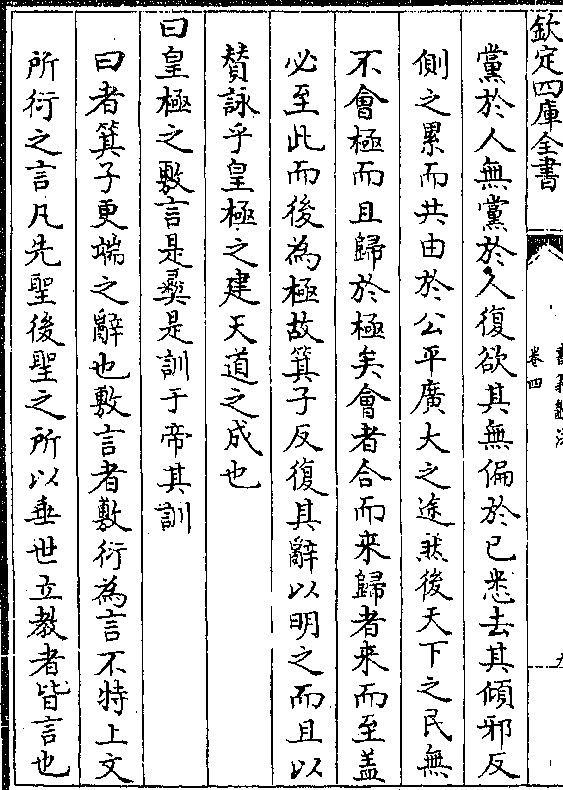 欽定四庫全書
卷四
黨於人無黨於人復欲其無偏於已悉去其傾邪反
側之累而共由於公平廣大之途然後天下之民無
不會極而且歸於極矣會者合而來歸者来而至盖
必至此而後為極故箕子反復其辭以明之而且以
賛詠乎皇極之建天道之成也
曰皇極之敷言是彞是訓于帝其訓
曰者箕子更端之辭也敷言者敷衍為言不特上文
所衍之言凡先聖後聖之所以垂世立教者皆言也